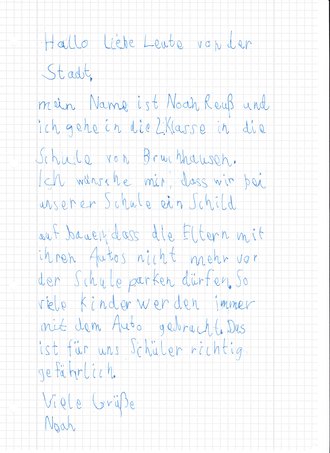 Hallo liebe Leute von der
Stadt,
mein Name ist Noah Reuß und
ich gehe in die 2. Klasse in die
Schule von Bruchhausen.
Ich wünsche mir, dass wir bei
unserer Schule ein Schild
auf bauen, dass die Eltern mit
ihren Autos nicht mehr vor
der Schule parken dürfen. So
viele Kinder werden immer
mit dem Auto gebracht. Das
ist für uns Schüler richtig
gefährlich.
Viele Grüße
Noah